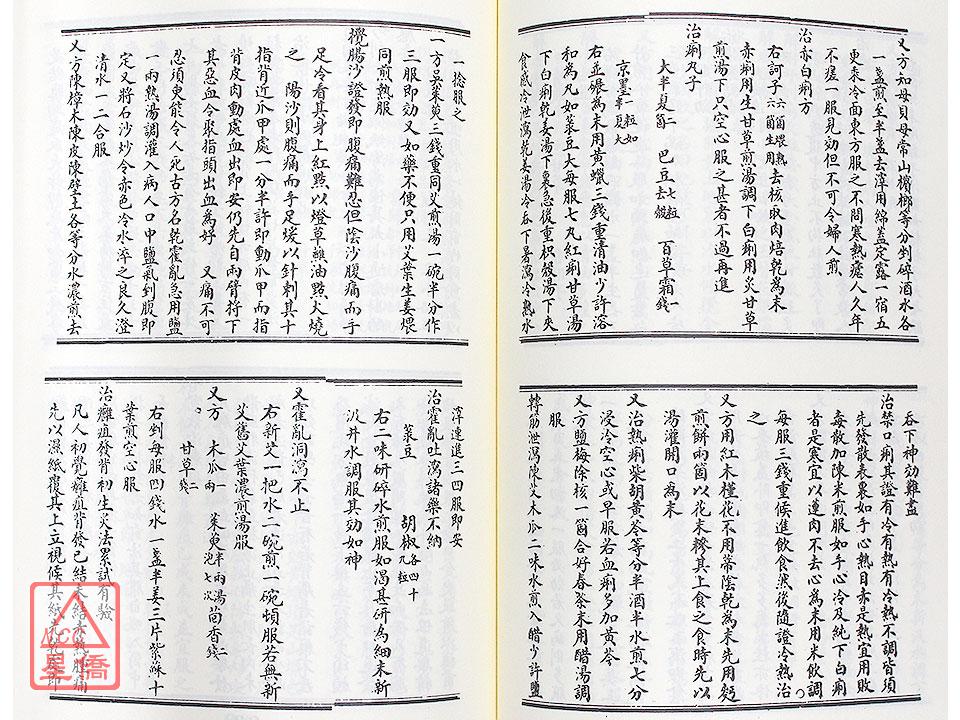 又方知母貝母常山檳榔等分剉碎酒水各
一盞煎至半盞去滓用綿蓋定露一宿五
更奈冷面東方服之不問寒熱瘧人久年
不瘥一服見効但不可令婦人煎
治赤白痢方
右訶子六箇煨熟六箇生用去核取肉焙乾為末
赤痢用生甘草煎湯調下白痢用炙甘草
煎湯下只空心服之甚者不過再進
治痢丸子
大半夏二箇 巴豆七粒去殼 百草霜一錢
京墨一粒如半夏大
右並碾為末用黃蠟三錢重清油少許溶
和為丸如菉豆大每服七丸紅痢甘草湯
下白痢乾姜湯下裏急後重枳殼湯下夾
食感冷泄瀉乾姜湯冷吞下暑瀉冷熟水
吞下神効難盡
治禁口痢其證有冷有熱有冷熱不調皆須
先發散表裏如手心熱目赤是熱宜用敗
毒散加陳米煎服如手心冷及純下白痢
者是寒宜以蓮肉不去心為末用米飲調
每服三錢重候進飲食然後隨證冷熱治
之
又方用紅木槿花不用蒂陰乾為末先用麪
煎餅兩箇以花末糝其上食之食時先以
湯灌開口為末
又治熱痢柴胡黃芩等分半酒半水煎七分
浸冷空心或早服若血痢多加黃芩
又方鹽梅除核一箇合好春茶末用醋湯調
服
轉筋泄瀉陳艾木瓜二味水煎入醋少許鹽
一捻服之
一方吳茱萸三錢重同艾煎湯一碗半分作
三服即効又如藥不便只用艾葉生姜煨
同煎熟服
攪腸沙證發即腹痛難忍但陰沙腹痛而手
足冷看其身上紅㸃以燈草蘸油㸃火燒
之 陽沙則腹痛而手足煖以針刺其十
指背近爪甲處一分半許即動爪甲而指
背皮肉動處血出即安仍先自兩臂捋下
其惡血令聚指頭出血為好 又痛不可
忍須臾能令人死古方名乾霍亂急用鹽
一兩熟湯調灌入病人口中鹽氣到腹即
定又將石沙炒令赤色冷水淬之良久澄
清水一二合服
又方陳樟木陳皮陳壁土各等分水濃煎去
滓連進三四服即安
治霍亂吐瀉諸藥不納
菉豆 胡椒各四十九粒
右二味研碎水煎服如渴甚研為細末新
汲井水調服其効如神
又霍亂洞瀉不止
右新艾一把水二碗煎一碗頓服若無新
艾舊艾葉濃煎湯服
又方 木瓜一兩 茱萸半兩湯泡七次 茴香二錢
甘草二錢
右剉每服四錢水一盞半姜三片紫蘇十
葉煎空心服
治癰疽發背初生灸法累試有驗
凡人初覺癰疽背發已結未結赤熱腫痛
先以濕紙覆其上立視候其紙先乾處即
星僑
NCC